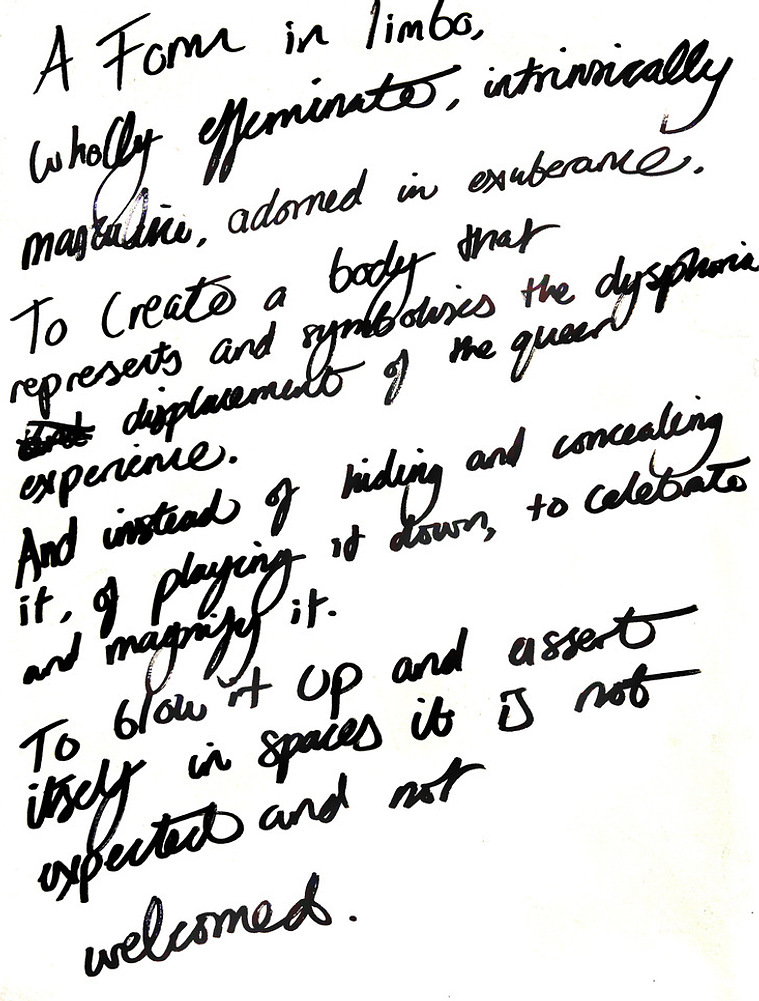 A Form in limbo,
wholly effeminate, intrinsically
masculine, adorned in exuberance.
To Create a body that
represents and symbolises the dysphoria
displacement of the queer
experience.
And instead of hiding and concealing
it, of playing it down, to celebrate
and magnify it.
To blow it up and assert
itself in spaces it is not
expected and not
welcomed.